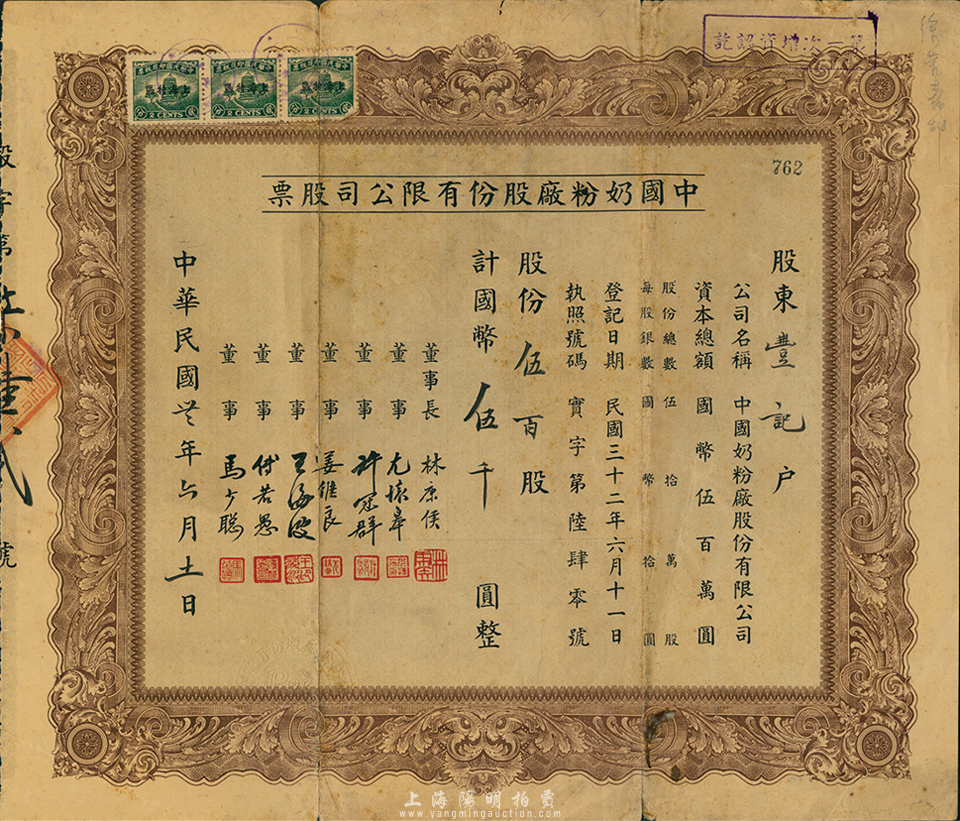 762
中國奶粉廠股份有限公司股票
股東 豐記 户
公司名稱 中國奶粉廠股份有限公司
資本總額 國幣伍百萬圓
股份總數 伍拾萬股
每股銀數 國幣拾圓
登記日期 民國三十二年六月十一日
執照號碼 實字第陸肆零號
股份 伍百 股
計國幣 伍千 圓整
董事長 林康侯
董事 尤懷皋
董事 許冠群
董事 姜維良
董事 王海波
董事 傅若愚
董事 馬少聰
中華民國卅二年六月十一日
2 CENTS
2 CENTS
2 CENTS
第一次增資認訖
股字第
號
上海陽明拍賣
www.yangmingauction.com